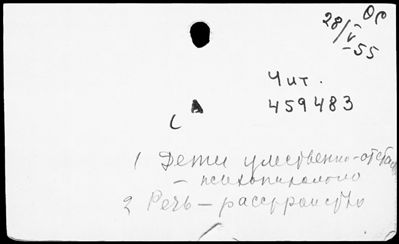 Ор
28/V-55
Чит.
459483
1 Дети умственно-отстал
- психопатолого
2 Речь - расстройство